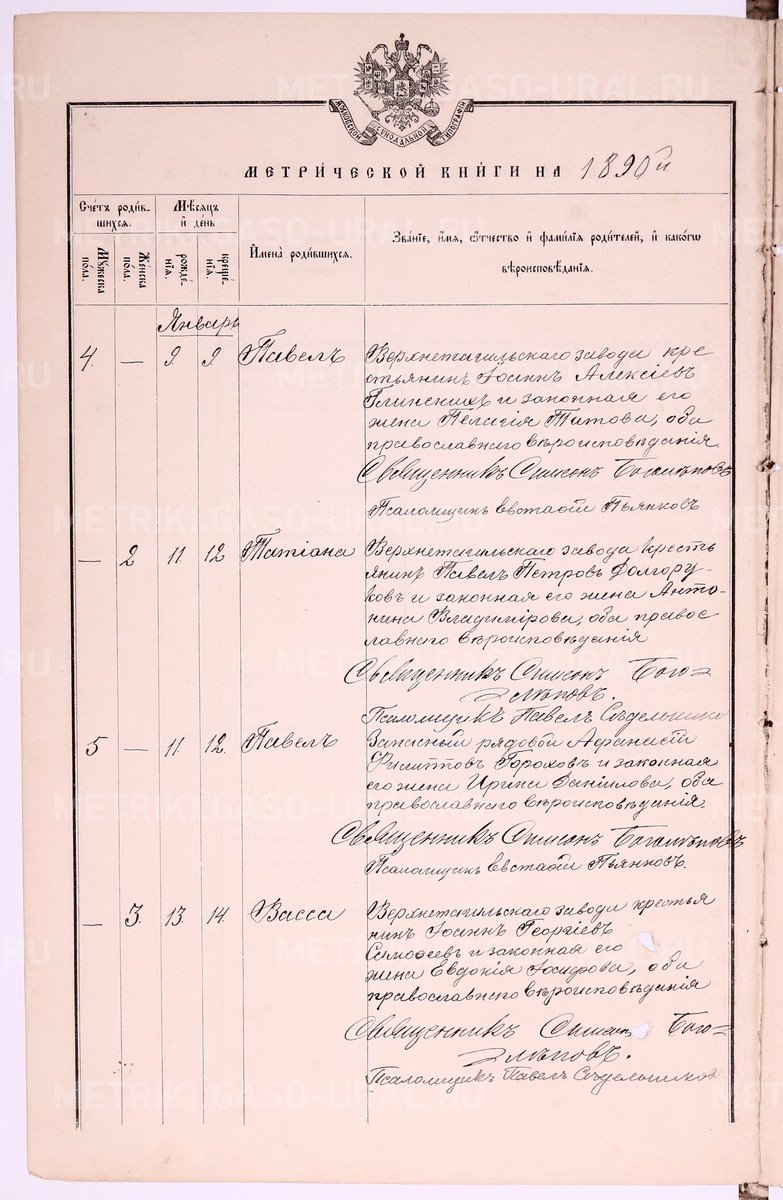 МОСКОВСКОЙ СѴНОДАЛЬНОЙ ТИПОГРАФІИ
МЕТРИ́ЧЕСКОЙ КНИ́ГИ НА 1890 й
Сче́тъ роди́в-
шихся.
Мѣ́сяцъ
и҆ де́нь
И҆мена̀ роди́вшихся.
Зва́нїе, и҆́мя, ѻ҆́тчество и҆ фами́лїя роди́телей, и҆ како́гѡ
вѣроисповѣ́данїя.
Мꙋ́жеска
по́ла.
Же́нска
по́ла.
рожде́-
нїя.
креще́-
нїя.
Январь
4. — 9 9 Павелъ
Верхнетагильскаго завода кре
стьянинъ Іоаннъ Алексіевъ
Глинскихъ и законная его
жена Пелагія Титова, оба
православнаго вѣроисповѣданія.
Священникъ Симеонъ Боголѣповъ
Псаломщикъ Евстафій Пьянковъ
— 2 11 12 Татіана
Верхнетагильскаго завода кресть
янинъ Павелъ Петровъ Долгору-
ковъ и законная его жена Анто-
нина Владимірова, оба правос
лавнаго вѣроисповѣданія
Священникъ Симеонъ Бого-
лѣповъ.
Псаломщикъ Павелъ Сѣдельнико
5 — 11 12. Павелъ
Запасный рядовой Афанасій
Филипповъ Гороховъ и законная
его жена Ирина Даніилова, оба
православнаго вѣроисповѣданія.
Священникъ Симеонъ Боголѣповъ
Псаломщикъ Евстафій Пьянковъ.
— 3. 13. 14. Васса
Верхнетагильскаго завода крестья
нинъ Іоаннъ Георгіевъ
и законная его
жена Евдокія Іосифова, оба
православнаго вѣроисповѣданія
Священникъ Симеонъ Бого-
лѣповъ.
Псаломщикъ Павелъ Сѣдельников